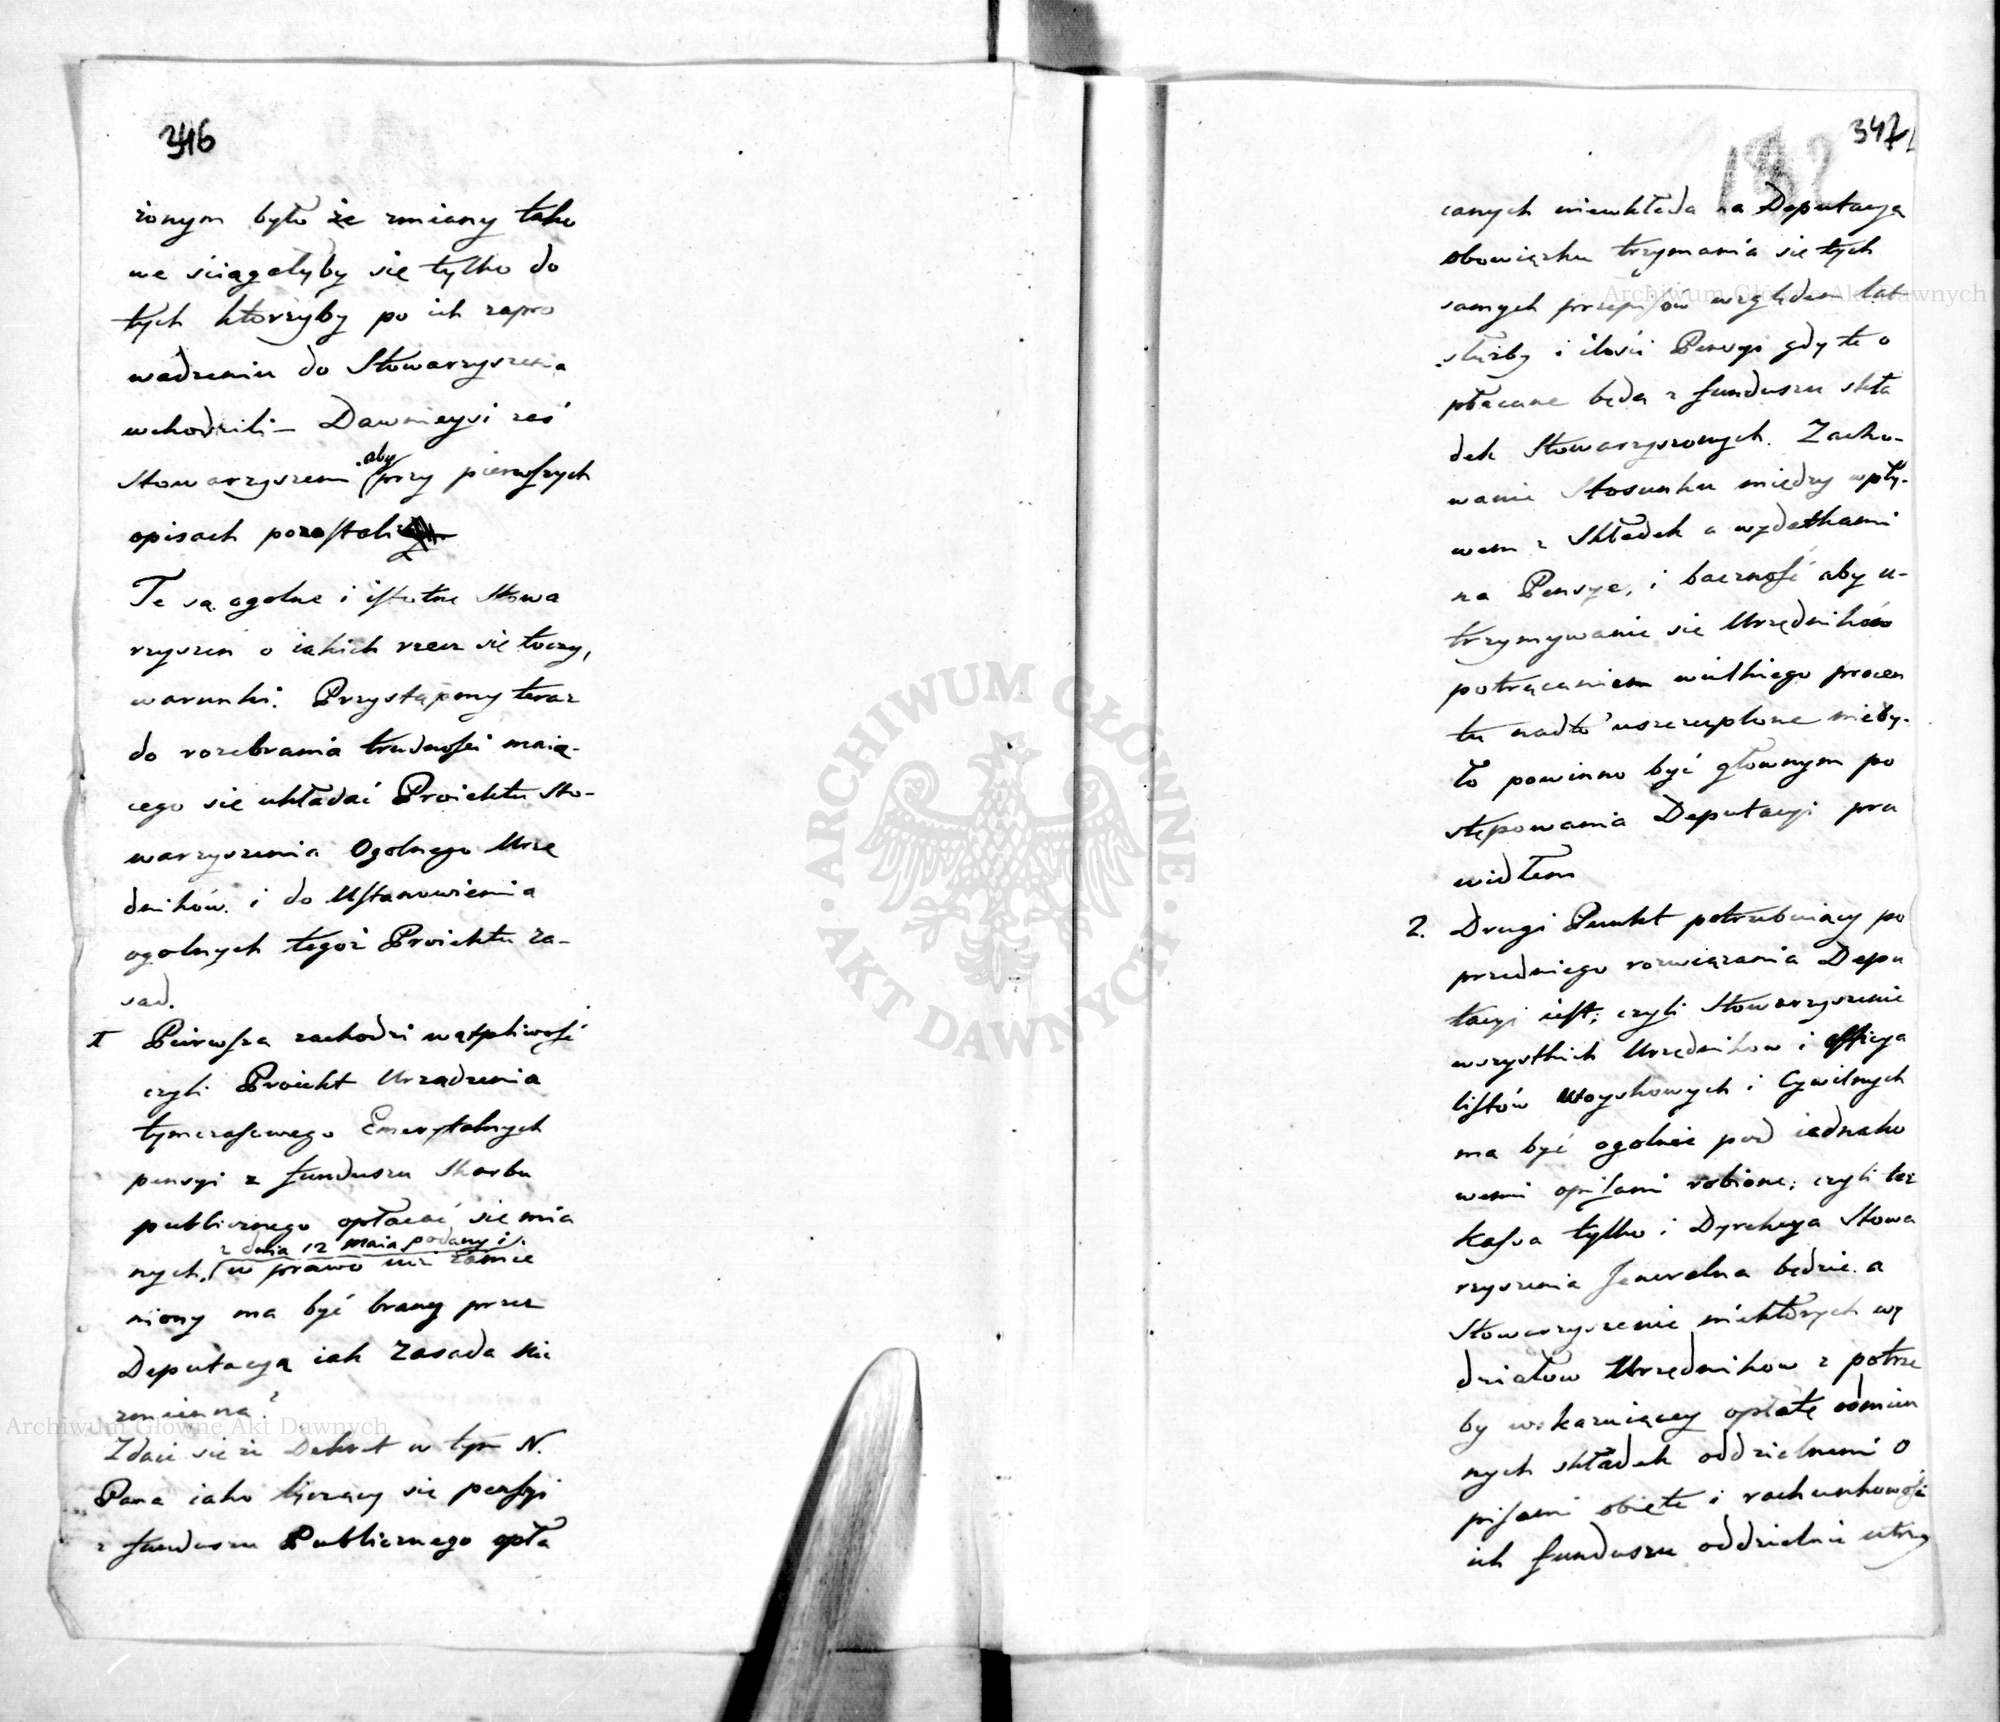 346
żonym było że zmiany tako
we ściągałyby się tylko do
tych ktorzyby po ich zapro
wadzeniu do Stowarzyszenia
wchodzili – Dawnieysi zaś
Stowarzyszeni aby przy pierwszych
opisach pozostali
Te są ogolne i istotne Stowa
rzyszen o iakich rzecz się toczy,
warunki. Przystąpmy teraz
do rozebrania trudnosci maią-
cego się układać Proiektu Sto-
warzyszenia Ogolnego Urzę
dników i do Ustanowienia
ogolnych tegoż Proiektu za-
sad.
1 Pierwsza zachodzi wątpliwość
czyli Proiekt Urządzenia
tymczasowego Emerytalnych
pensyi z funduszu Skarbu
publicznego opłacać się mia
z dnia 12 maia podany i
nych, w prawo już zamie
niony ma być brany przez
Deputacyą iak Zasada nie
zmienna?
Zdaie się że Dekret w tym N.
Pana iako tyczący się pensyi
z funduszu Publicznego opła
347
canych niewkłada na Deputacyą
obowiązku trzymania się tych
samych przepisów względem lat
służby i ilości Pensyi gdy te o
płacane będą z funduszu skła
dek Stowarzyszonych. Zacho-
wanie Stosunku między wpły-
wem z Składek a wydatkami
na Pensye, i baczność aby u-
trzymywanie się Urzędników
potrącaniem wielkiego procen
tu nadto uszczuplone nieby-
ło powinno być głownym po
stępowania Deputacyi pra
widłem
2. Drugi Punkt potrzebuiący po
przedniego rozwiązania Depu
tacyi iest; czyli Stowarzyszenie
wszystkich Urzędnikow i Officya
listów Woyskowych i Cywilnych
ma być ogolnie pod iednako
wemi opisami robione; czyli też
Kassa tylko i Dyrekcya Stowa
rzyszenia Jeneralna będzie a
Stowarzyszenie niektórych wy
działow Urzędnikow z potrze
by wskazuiącey opłatę odmien
nych składek oddzielnemi O
pisami obięte i rachunkowość
ich funduszu oddzielnie utrzy
Archiwum Główne Akt Dawnych
Archiwum Główne Akt Dawnych
ARCHIWUM GŁÓWNE • AKT DAWNYCH •